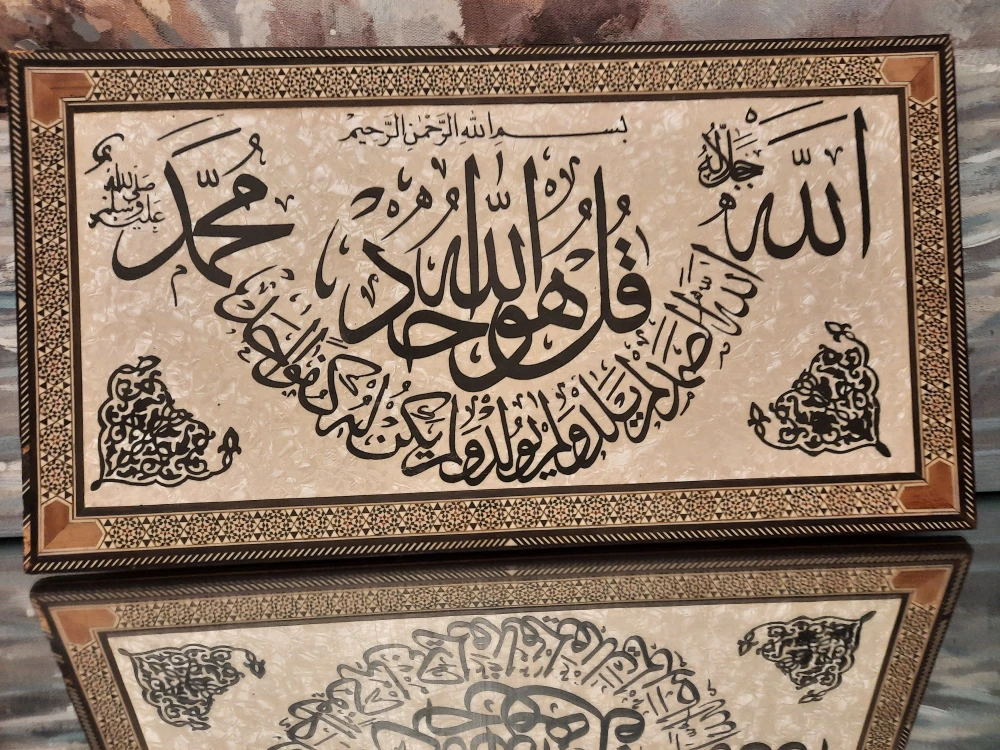 بسم الله الرحمن الرحيم
الله
جل جلاله
محمد
صلى الله عليه وسلم
قُل هُو الله احد
الله الصمد لم يلد ولم يولد ولم يكن له كفوا احد